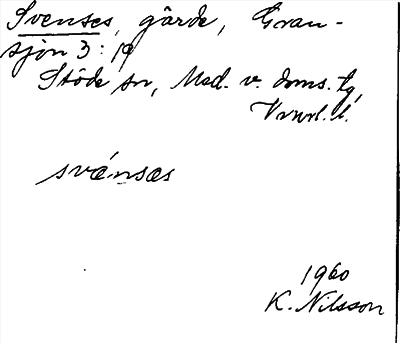 Svenses, gärde, Gran-
sjön 3:19
Stöde sn, Med. v. doms. tg,
Vrnrl. l.
svánsas
1960
K. Nilsson